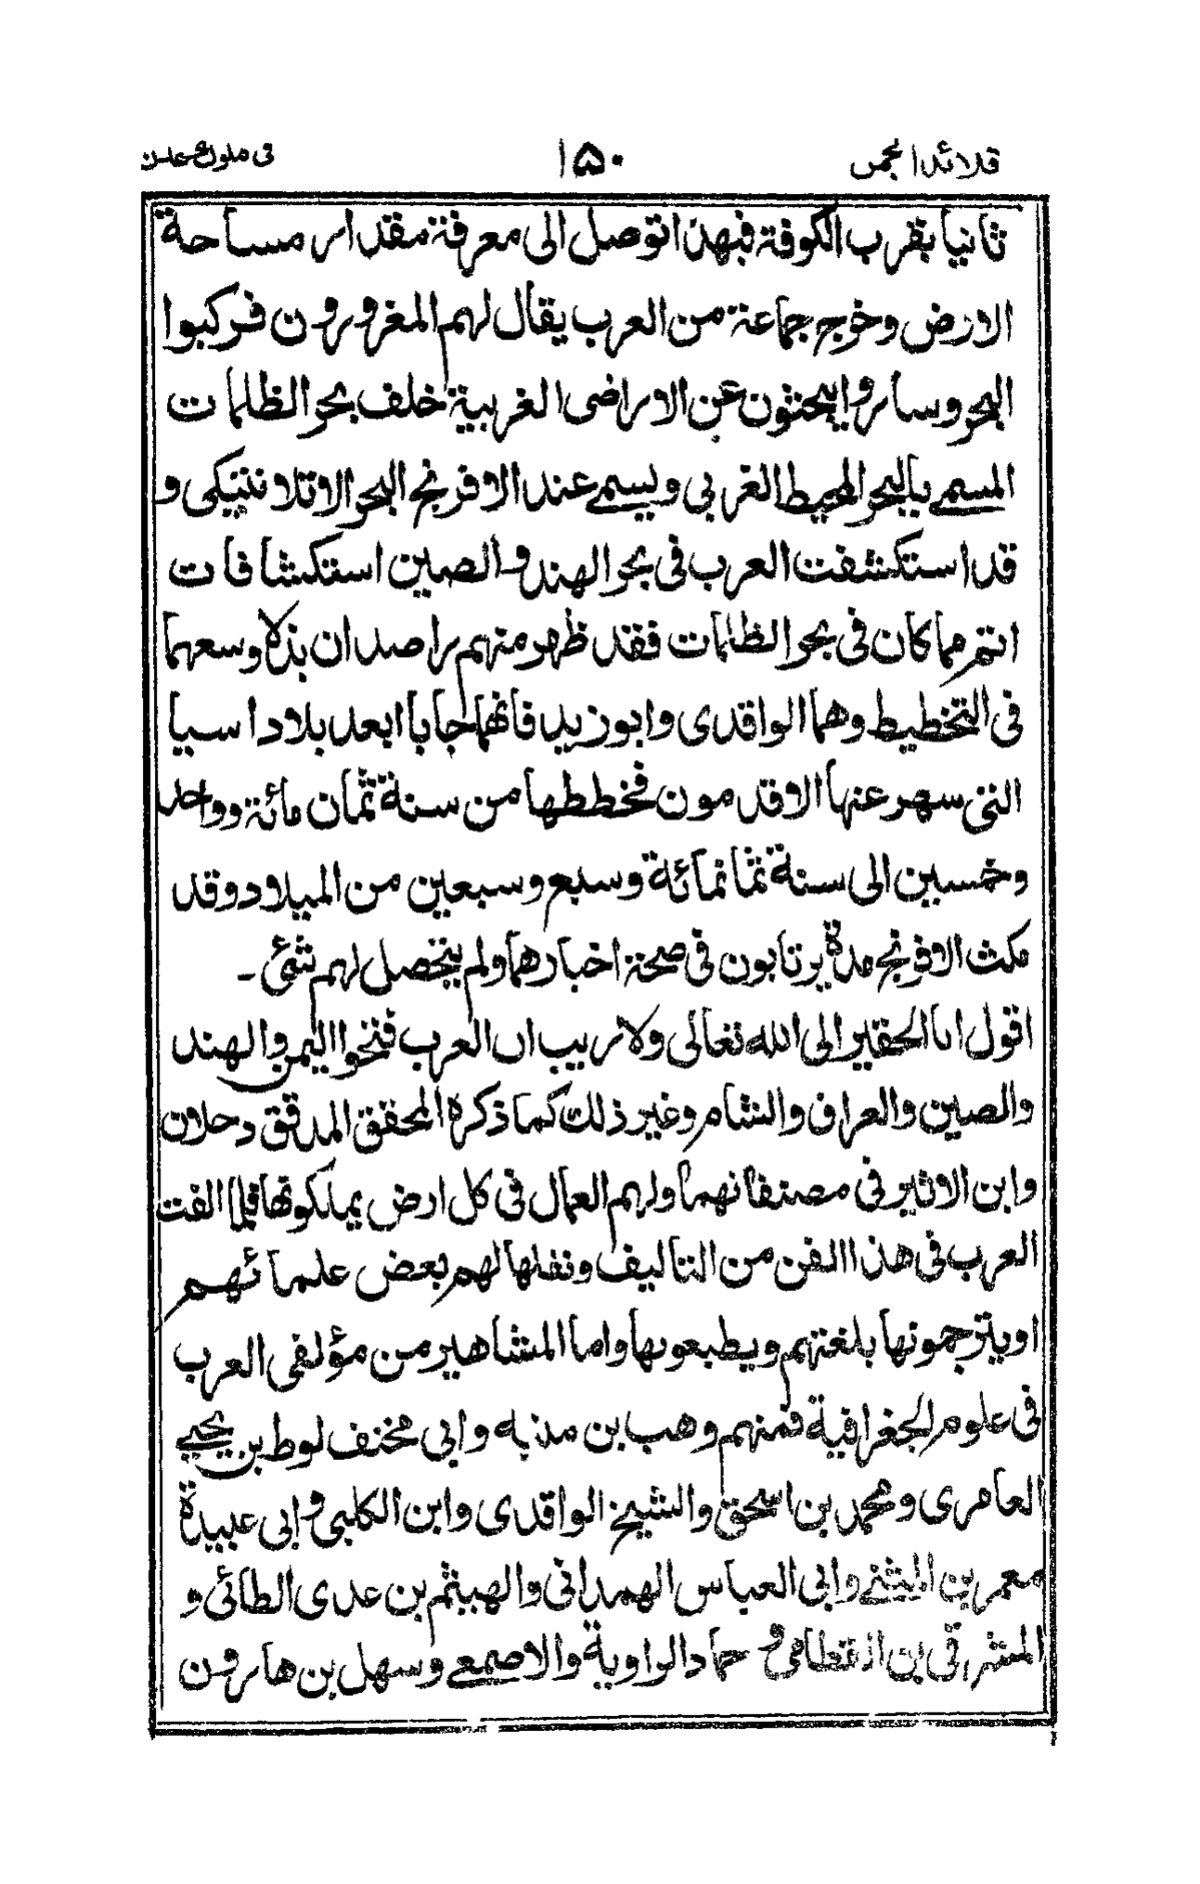 قلائد الجمن ١٥٠ فى ملوك عدن
ثانيا بقرب الكوفة فبهذا توصل الى معرفة مقدار مساحة
الارض وخرج جماعة من العرب يقال لهم المغرورون فركبوا
البحر وسارو ايبحثون عن الاراضى الغربية خلف بحر الظلمات
المسمى بالبحر المحيط الغربي ويسمى عند الافرنج البحر الاتلانتيكى و
قد استكشفت العرب فى بحر الهند والصين استكشافات
اتم مما كان فى بحر الظلمات فقد ظهر منهم راصدان بذلا وسعهما
فى التخطيط وهما الواقدى وابو زيد فانهما جابا ابعد بلاد اسيا
التى سهر عنها الاقدمون فخططها من سنة ثمان مائة وواحد
وخمسين الى سنة ثمانمائة وسبع وسبعين من الميلاد وقد
مكث الافرنج مدة يرتابون فى صحة اخبارهما ولم يتحصل لهم شئ -
اقول انا الحقير الى الله تعالى ولا ريب ان العرب فتحوا اليمن والهند
والصين والعراق والشام وغير ذلك كما ذكره المحقق المدقق دحلان
وابن الاثير فى مصنفاتهما ولهم العمال فى كل ارض يملكونها قلما الفت
العرب فى هذا الفن من التاليف ونقلها لهم بعض علمائهم
اويترجمونها بلغتهم ويطبعونها واما المشاهير من مؤلفى العرب
فى علوم الجغرافية فمنهم وهب بن منبه وابى مخنف لوط بن يحيى
العامرى ومحمد بن اسحق والشيخ الواقدى وابن الكلبى وابى عبيدة
معمر بن المثنى وابى العباس الهمدانى والهيثم بن عدى الطائى و
المشرقى بن القطامى و حماد الراوية والاصمعى وسهل بن هارون